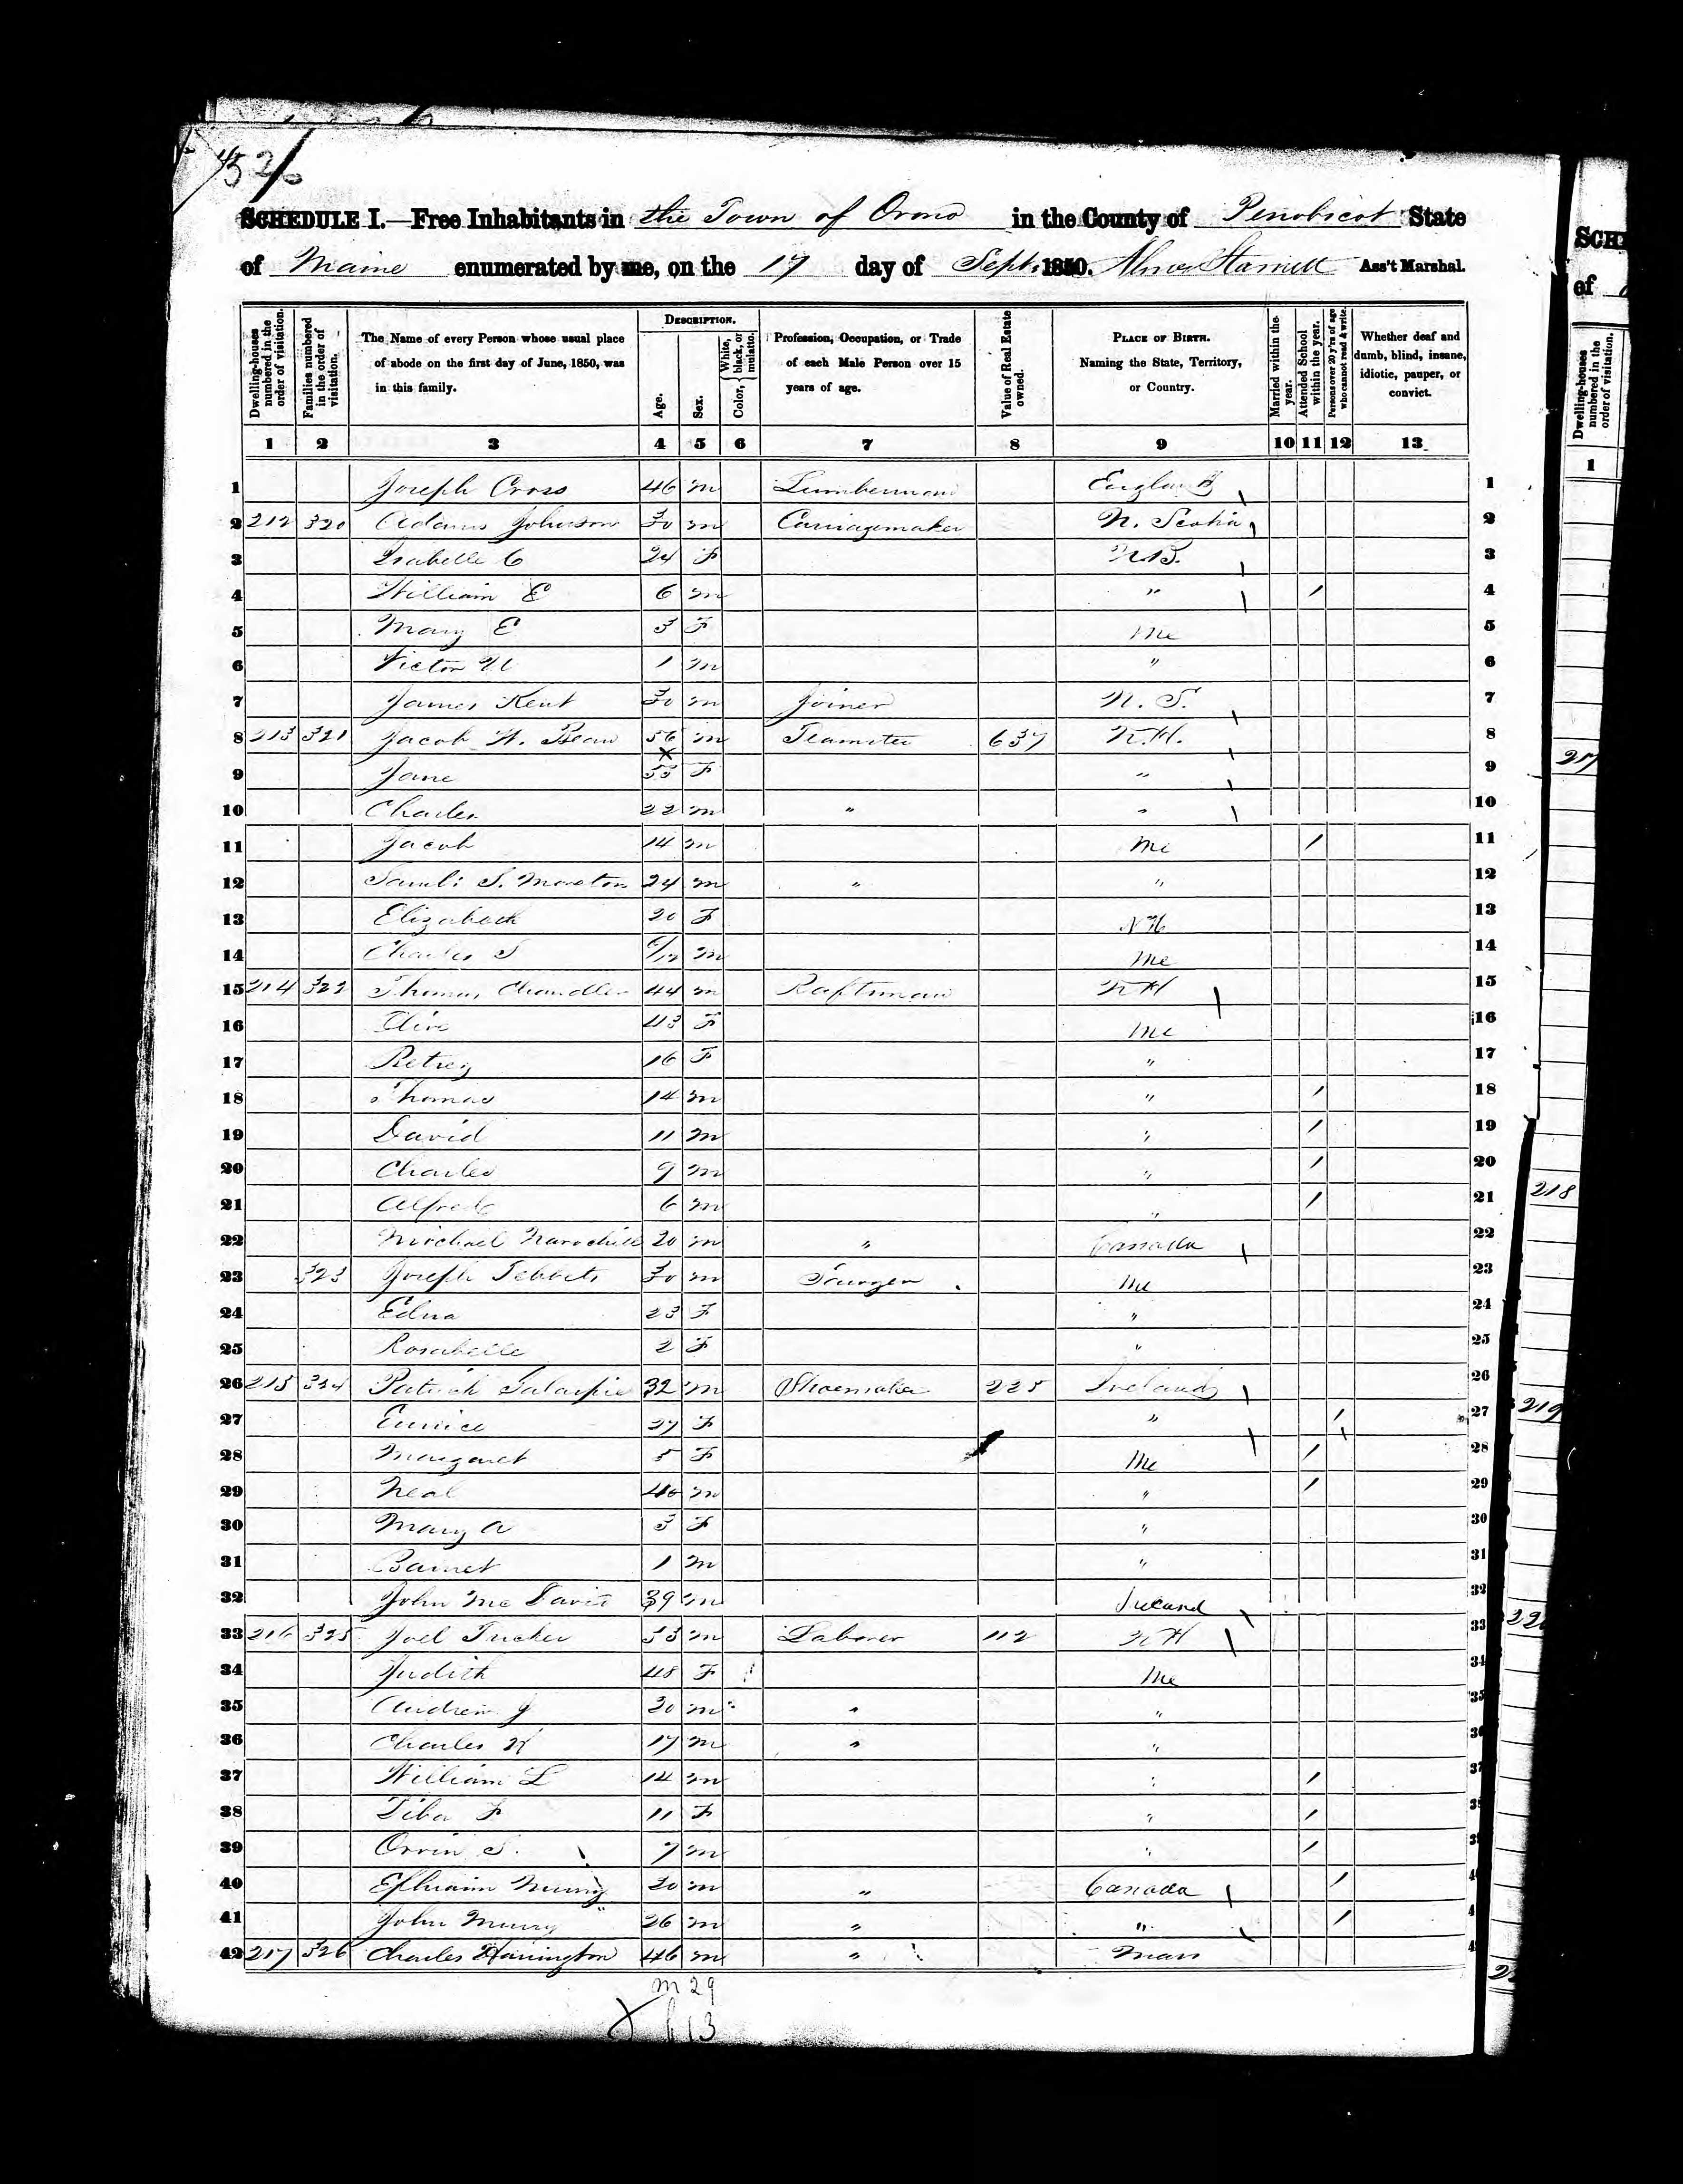 452
SCHEDULE I.—Free Inhabitants in the Town of Orono in the County of Penobscot State
of Maine enumerated by me, on the 17 day of Sept. 1850. Ass't Marshal.
Dwelling-houses numbered in the order of visitation.
Families numbered in the order of visitation.
The Name of every Person whose usual place of abode on the first day of June, 1850, was in this family.
DESCRIPTION.
Age.
Sex.
Color, White, black, or mulatto.
Profession, Occupation, or Trade of each Male Person over 15 years of age.
Value of Real Estate owned.
PLACE OF BIRTH. Naming the State, Territory, or Country.
Married within the year.
Attended School within the year.
Persons over 20 y'rs of age who cannot read & write.
Whether deaf and dumb, blind, insane, idiotic, pauper, or convict.
1 2 3 4 5 6 7 8 9 10 11 12 13
1 Joseph Cross 46 m Lumberman England 1
2 212 320 Adams Johnson 30 m Carriagemaker N. Scotia 2
3 Isabelle C 24 F N.B. 3
4 William E 6 m " / 4
5 Mary E 3 F Me 5
6 Victor 1 m " 6
7 James Kent 30 m Joiner N. S. 7
8 213 321 Jacob W. Bean 56 m Teamster 637 N.H. 8
9 Jane 55 F " 9
10 Charles 22 m " " 10
11 Jacob 14 m Me / 11
12 Saml: S. Moreton 24 m " " 12
13 Elizabeth 20 F NH 13
14 Charles S 6/12 m Me 14
15 214 322 Thomas Chandler 44 m Raftsman NH 15
16 Olive 43 F Me 16
17 Betsey 16 F " 17
18 Thomas 14 m " / 18
19 David 11 m " / 19
20 Charles 9 m " / 20
21 Alfred 6 m " / 21
22 Michael 20 m " Canada 22
23 323 Joseph Tebbets 30 m Me 23
24 Edna 23 F " 24
25 Rosabelle 2 F " 25
26 215 324 Patrick 32 m Shoemaker 225 Ireland 26
27 Eunice 27 F " / 27
28 Margaret 5 F Me / 28
29 Neal 4 m " / 29
30 Mary A 3 F " 30
31 Barnet 1 m " 31
32 John Mc Davit 39 m Ireland 32
33 216 325 Joel Tucker 53 m Laborer 112 NH 33
34 Judith 48 F Me 34
35 Andrew J 20 m " " 35
36 Charles H 17 m " " 36
37 William L 14 m " / 37
38 Tiba F 11 F " / 38
39 Orrin S. 7 m " / 39
40 Ephraim Murry 20 m " Canada / 40
41 John Murry 26 m " " / 41
42 217 326 Charles Harrington 46 m " Mass 42
m 29
f 13
SCH
of
Dwelling-houses numbered in the order of visitation.
1
217
218
219
220